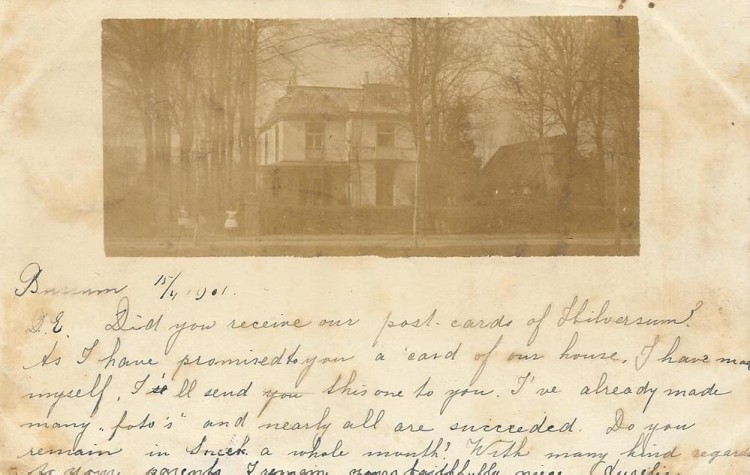 Bussum 15/4 1901.
D.E. Did you receive our post-cards of Hilversum?
As I have promised to you a card of our house, I have made
myself, I'll send you this one to you. I've already made
many "foto's" and nearly all are succeeded. Do you
remain in Sneek a whole month? With many kind regards
to your parents I remain your faithfully niece